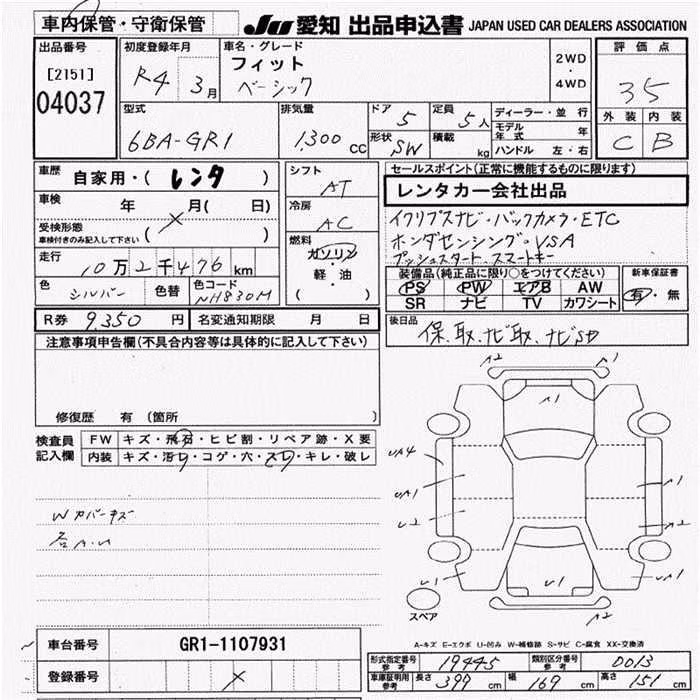 車内保管・守衛保管
JU 愛知 出品申込書 JAPAN USED CAR DEALERS ASSOCIATION
出品番号 [2151] 04037
初度登録年月 R4 3月
車名・グレード フィット ベーシック
2WD・4WD
評価点 35
外装 内装
C B
型式 6BA-GR1
排気量 1,300 CC
ドア 5
形状 SW
定員 5人
積載 kg
ディーラー・並行
モデル年式 年
ハンドル 左・右
車歴 自家用・( レンタ )
車検 年 月( 日)
受検形態 車検付きのみ記入して下さい ( )
走行 10万2千476km
色 シルバー 色替 色コード NH830M
シフト AT
冷房 AC
燃料 ガソリン 軽・油 ( )
セールスポイント(正常に機能するものに限ります)
レンタカー会社出品
イクリプスナビ・バックカメラ・ETC
ホンダセンシング・VSA
プッシュスタート スマートキー
装備品(純正品に限り○をつけてください)
PS PW エアB AW
SR ナビ TV カワシート
新車保証書 有・無
R券 9,350円 名変通知期限 月 日
後日品 保.取.ナビ取.ナビSD
注意事項申告欄(不具合内容等は具体的に記入して下さい)
修復歴 有 (箇所 )
検査員記入欄
FW キズ・飛石・ヒビ割・リペア跡・X要
内装 キズ・汚レ・コゲ・穴・スレ・キレ・破レ
Wカバーキズ
各A.U
A2 A1
A1
UA4
UA1 A1
U2 A2
U1 U1 UA1
A2
スペア
A-キズ E-エクボ U-凹み W-補修跡 S-サビ C-腐食 XX-交換済
車台番号 GR1-1107931
登録番号
形式指定番号 参考 19445 類別区分番号 参考 0013
車庫証明用 参考 長さ 399 cm 幅 169 cm 高さ 151 cm